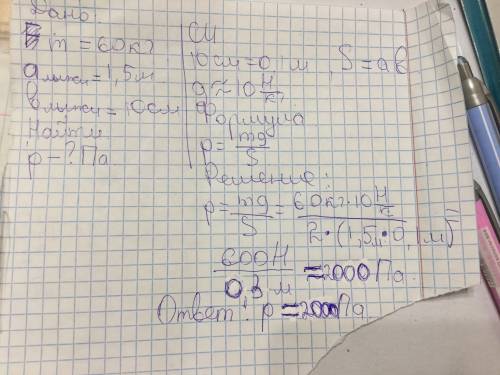 Дано:
m = 60 кг
a лыжи = 1,5 м
b лыжи = 10 см
Найти
p - ? Па.
СИ
10 см = 0,1 м, S = ab
g ≈ 10 Н/кг
Формула
p = mg/S
Решение:
p = mg/S = 60 кг · 10 Н/кг / 2 · (1,5 м · 0,1 м) =
600 Н / 0,3 м = 2000 Па.
Ответ: p = 2000 Па.